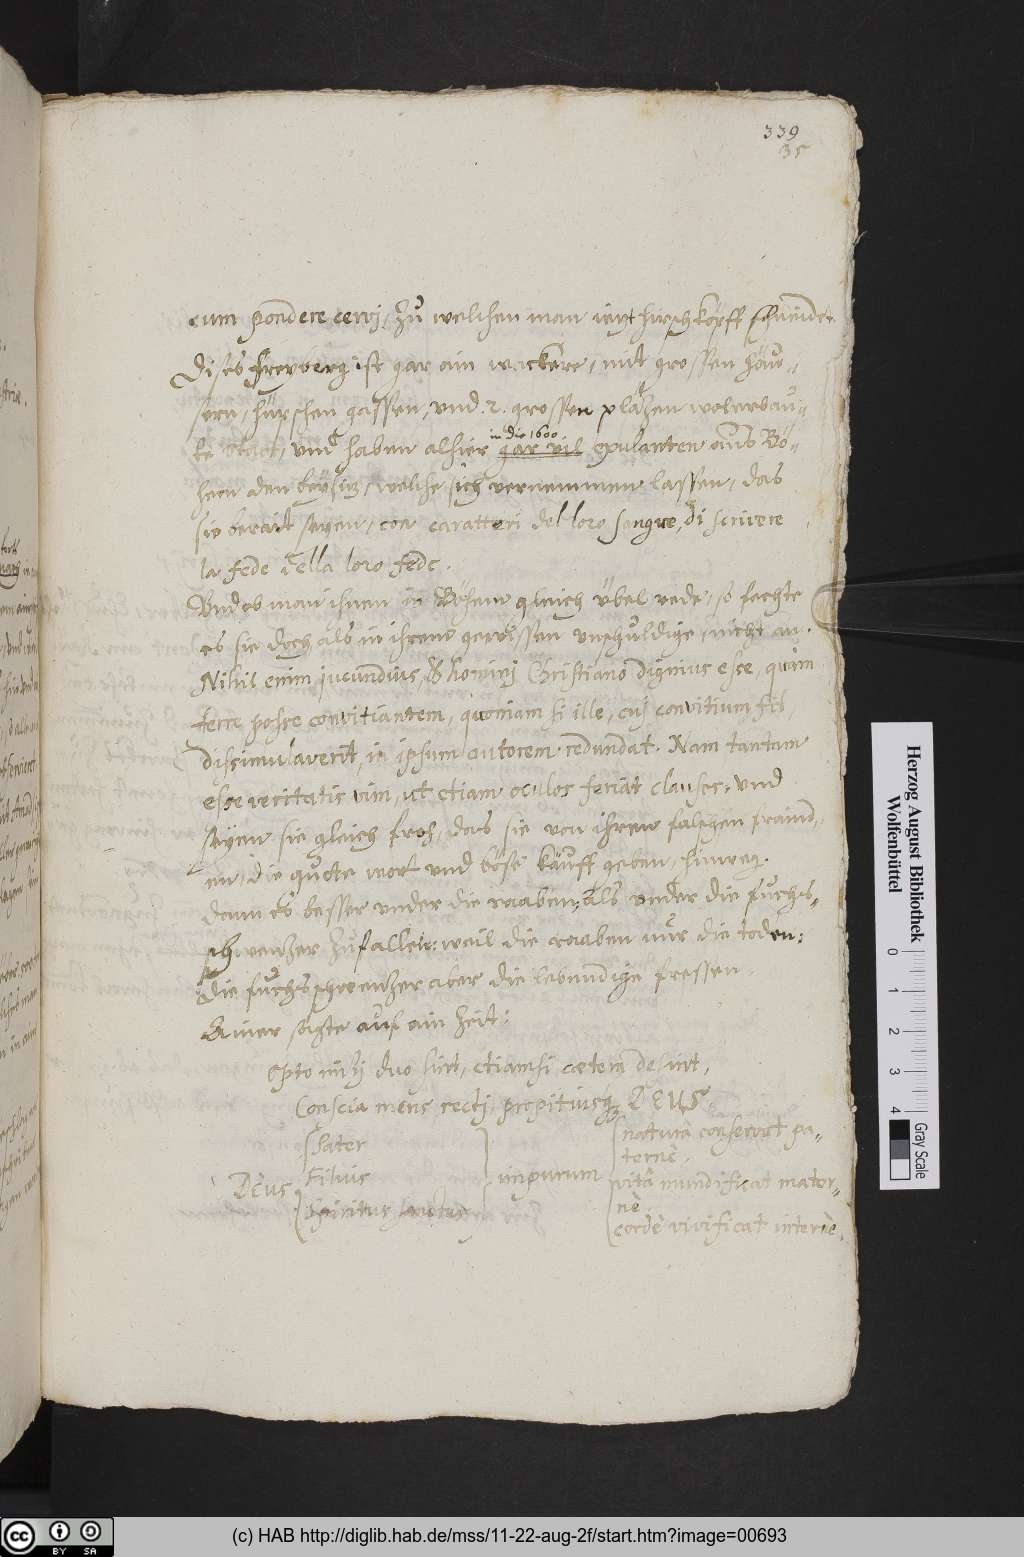 339
35
cum pondere cervj, zu welchen man iezt hirschköpff schneidet.
Dises Freyberg ist gar ain wackere, mit grossen heü-
sern, hüpschen gassen, vnd .2. grossen pläzen wolerbau-
te Statt, vnd haben alhier gar vil exulanten aus Bö-
in die 1600
hem den beysiz, welche sich vernemmen lassen, das
sie berait seyen, con caratteri del loro sangue, di scrivere
la fede della loro fede.
Vnd ob man ihnen in Böhem gleich übel rede, so fechte
es sie doch als in ihrem gewissen vnschuldige, nicht an.
Nihil enim jucundius, & hominj Christiano dignius esse, quàm
ferre posse convitiantem, quoniam si ille, cuj convitium fit,
dissimulaverit, in ipsum autorem redundat. Nam tantam
esse veritatis vim, ut etiam oculos feriat clausos, vnd
seyen sie gleich froh, das sie von ihren falschen fraind-
en, die guote wort vnd böse käuff geben, hinweg.
denn es besser vnder die raaben, als vnder die fuchs-
schwenzer zufallen: weil die raaben nur die toden:
die fuchsschwenzer aber die lebendige fressen.
Einer sagte auf ain zeit:
Opto mihj duo sint, etiamsi caetera desint,
Conscia mens rectj, propitiusq DEUS.
Deus
Pater
Filius
Spiritus sanctus
impurum
naturâ conservat pa-
ternè.
vitâ mundificat mater-
nè
corde vivificat internè.
Herzog August Bibliothek
Wolfenbüttel
0 1 2 3 4
Gray Scale
(c) HAB http://diglib.hab.de/mss/11-22-aug-2f/start.htm?image=00693
cc BY SA